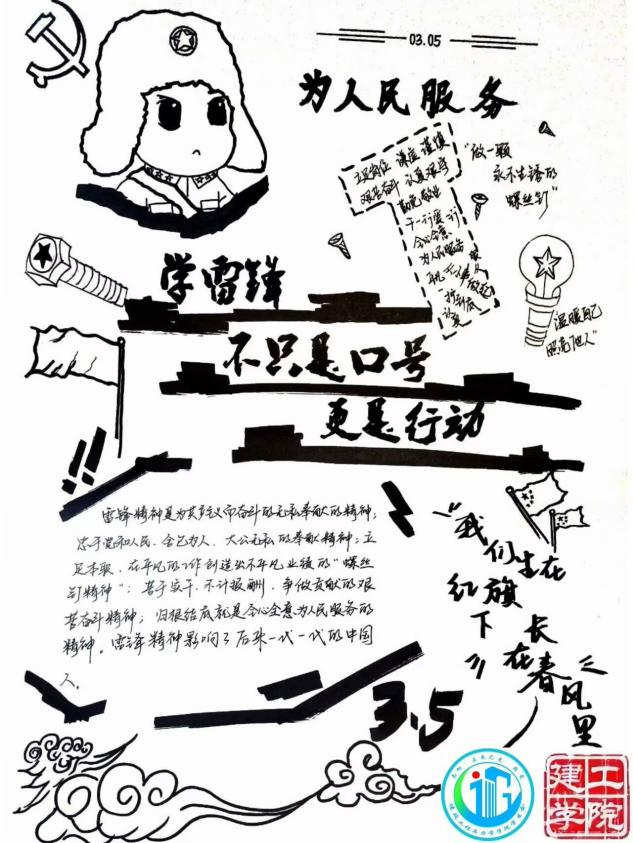 03.05
为人民服务
立足岗位 谦虚 谨慎
艰苦奋斗 认真 艰辛
勤勉 敬业
干一行 爱一行
全心全意
为人民服务
"做一颗
永不生锈的
螺丝钉"
学雷锋
温暖自己
照亮他人"
不只是口号
更是行动
雷锋精神是为共产主义而奋斗的无私奉献的精神;
忠于党和人民、舍己为人、大公无私的奉献精神;立
足本职、在平凡的工作创造出不平凡业绩的"螺丝
钉精神";苦干实干、不计报酬、争做贡献的艰
苦奋斗精神;归根结底就是全心全意为人民服务的
精神。雷锋精神影响了后来一代一代的中国
人。
"我们生在
红旗下
长在春风里
3.5
建工
学院